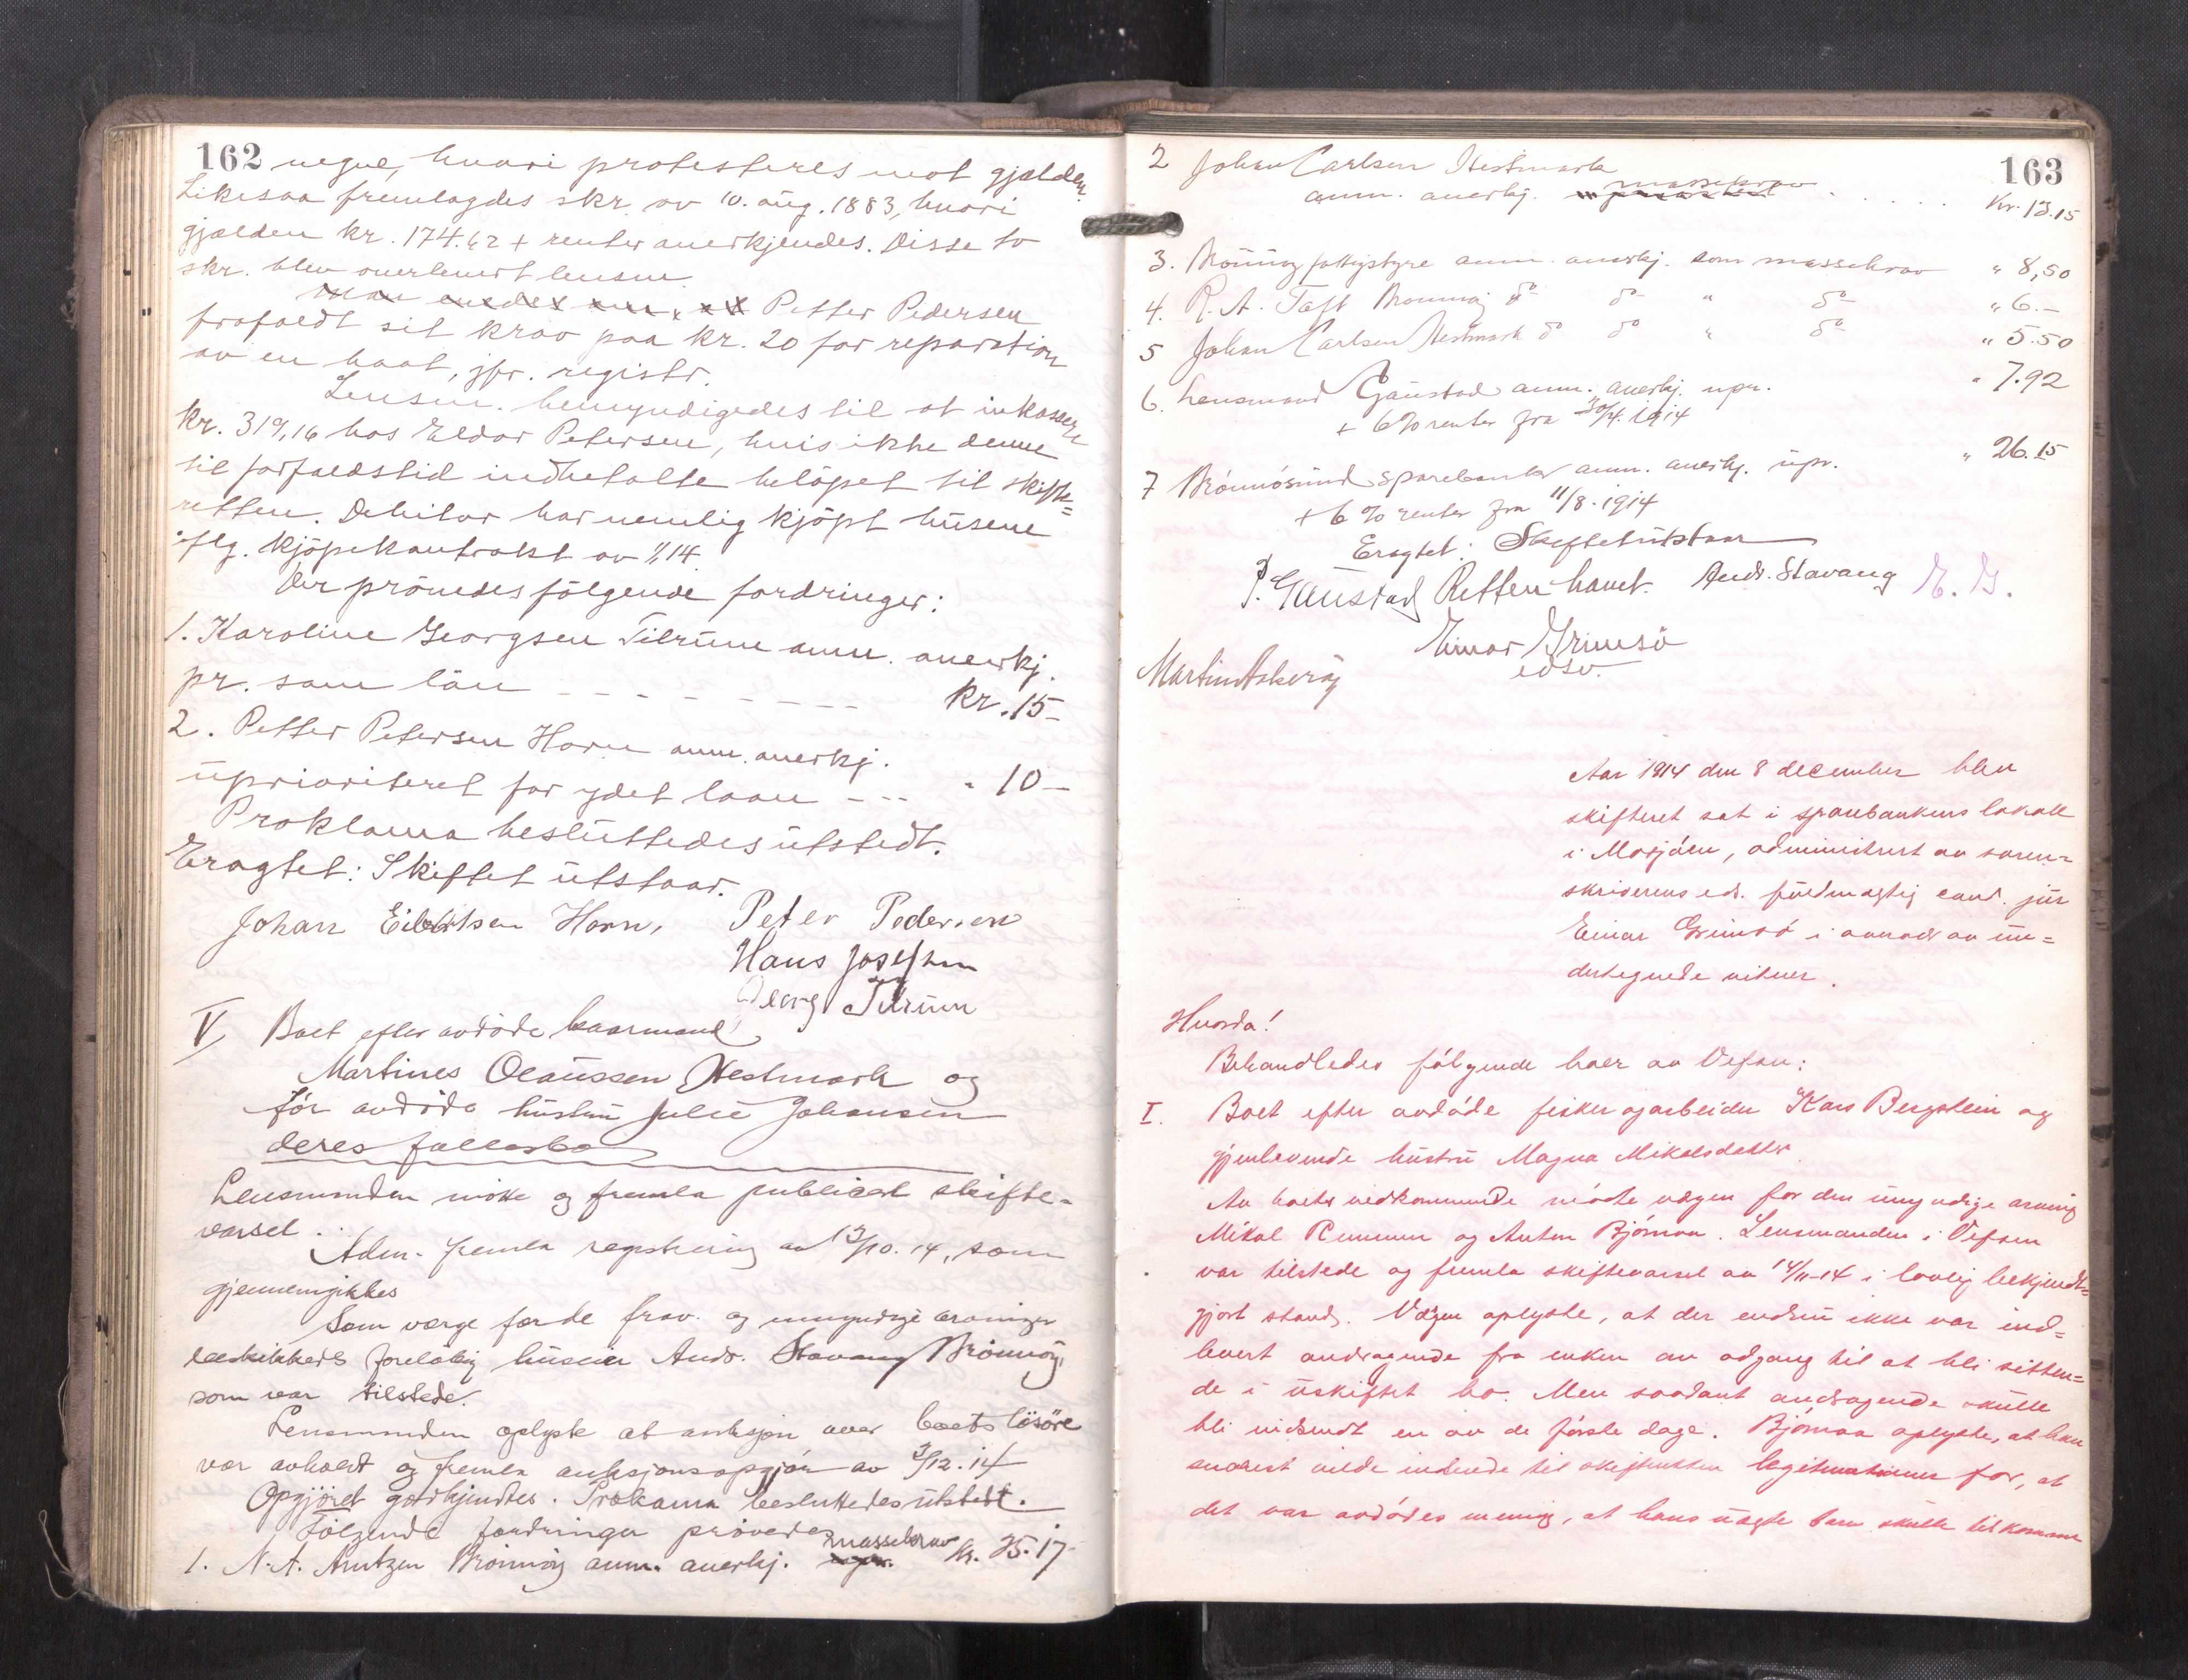 162
negne, hvori protesteres mot gjælden.
Likesaa fremlagdes skr. av 10. aug. 1883, hvori
gjælden kr. 174.62 + renter anerkjendes. Disse to
skr. blev overlevert lensm.
Petter Pedersen
frafaldt sit krav paa kr. 20 for reparation
av en baat, jfr. registr.
Lensm. bemyndigedes til at inkassere
kr. 319,16 hos Eldor Petersen, hvis ikke denne
til forfaldstid indbetalte beløpet til skifte=
retten. Debitor har nemlig kjøpt husene
iflg. kjøpekontrakt av 14.
Der prøvedes følgende fordringer:
1. Karoline Georgsen Tilrum anm. anerkj.
pr. som løn - - - - - - - kr. 15-
2. Petter Petersen Horn anm. anerkj.
uprioriteret for ydet laan - - - " 10-
Proklama besluttedes utstedt.
Eragtet: Skiftet utstaar.
Johan Eibertsen Horn, Peter Pedersen
Hans Josefsen
Georg Tilrum
V Boet efter avdøde baarmand
Martines Olaussen Hestmark og
før avdøde hustru Julie Johansen
deres fællesbo
Lensmanden møtte og fremla publicert skifte-
varsel.
Adm. fremla registrering av 13/10. 14, som
gjennemgikkes
Som værge for de frav. og umyndige arvinger
beskikkedes foreløbig Andr. Stavang Brønnøy,
som var tilstede.
Lensmanden oplyste at auksjon over boets løsøre
var avholdt og fremla auksjonsopgjør av 3/12. 14
Opgjøret godkjendtes. Proklama besluttedes utstedt.
Følgende fordringer prøvedes
1. N. A. Arntzen Brønnøy anm. anerkj. massekrav kr. 25.17
163
2 Johan Carlsen Hestmark
anm. anerkj. massekrav . . . . . Kr. 13.15
3. Brønnøy fattigstyre anm. anerkj. som massekrav " 8,50
4. R. A. Toft Brønnøy do do " do " 6.-
5 Johan Carlsen Hestmark do do " do " 5.50
6. Lensmand Gaustad anm. anerkj. upr. " 7.92
+ 6% renter fra 30/4. 1914
7 Brønnøsund sparebank anm. anerkj. upr. " 26.15
+ 6 % renter fra 11/8. 1914
Eragtet: Skiftet utstaar
P. Gaustad Retten hævet. Andr. Stavang E. G.
Einar Grimsø
edsv.
Martin Askerøy
Aar 1914 den 8 december blev
skifteret sat i sparebankens lokale
i Mosjøen, administrert av soren=
skriverens eds. fuldmægtig cand. jur
Einar Grimsø i overvær av un=
dertegnede vitner.
Hvorda!
Behandledes følgende boer av Vefsn:
I. Boet efter avdøde fisker og arbeider Kars Bergstein og
gjenlevende hustru Magna Mikalsdatter
Av boets vedkommende møtte værgen for den umyndige arving
Mikal Remmen og Anton Bjørnaa. Lensmanden i Vefsn
var tilstede og fremla skiftevarsel av 14/11-14 i lovlig bekjendt=
gjort stand. Værgen oplyste, at der endnu ikke var ind=
levert andragende fra enken om adgang til at bli sitten=
de i uskiftet bo. Men saadant andragende skulle
bli indsendt en av de første dage. Bjørnaa oplyste, at han
snarest vilde indsende til skifteretten legitimationer for, at
det var avdødes mening, at hans uægte barn skulle tilkomme